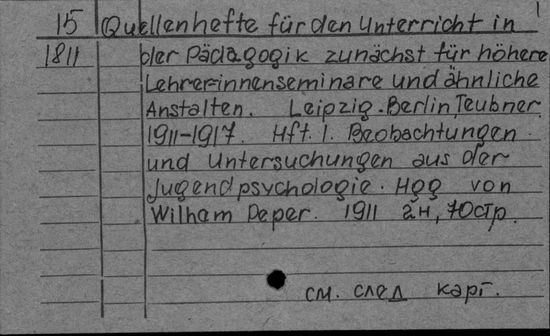 15 Quellenhefte für den Unterricht in 1
1811 der Pädagogik zunächst für höhere
Lehrerinnenseminare und ähnliche
Anstalten. Leipzig-Berlin, Teubner
1911-1917. Hft. 1. Beobachtungen
und Untersuchungen aus der
Jugendpsychologie. Hgg von
Wilham Peper. 1911 2н, 70стр.
см. след карт.